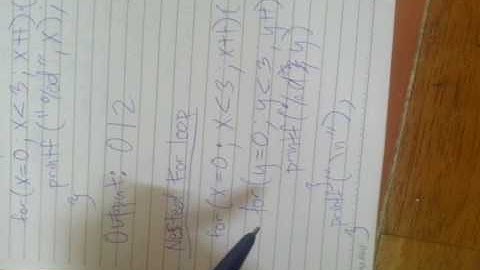 for(x=0; x<3; x++){
printf("%d", x);
}
Output: 012
Nested for loop
for(x=0; x<3; x++){
for(y=0; y<3; y++)
printf("%d", y)
}
printf("\n");
}